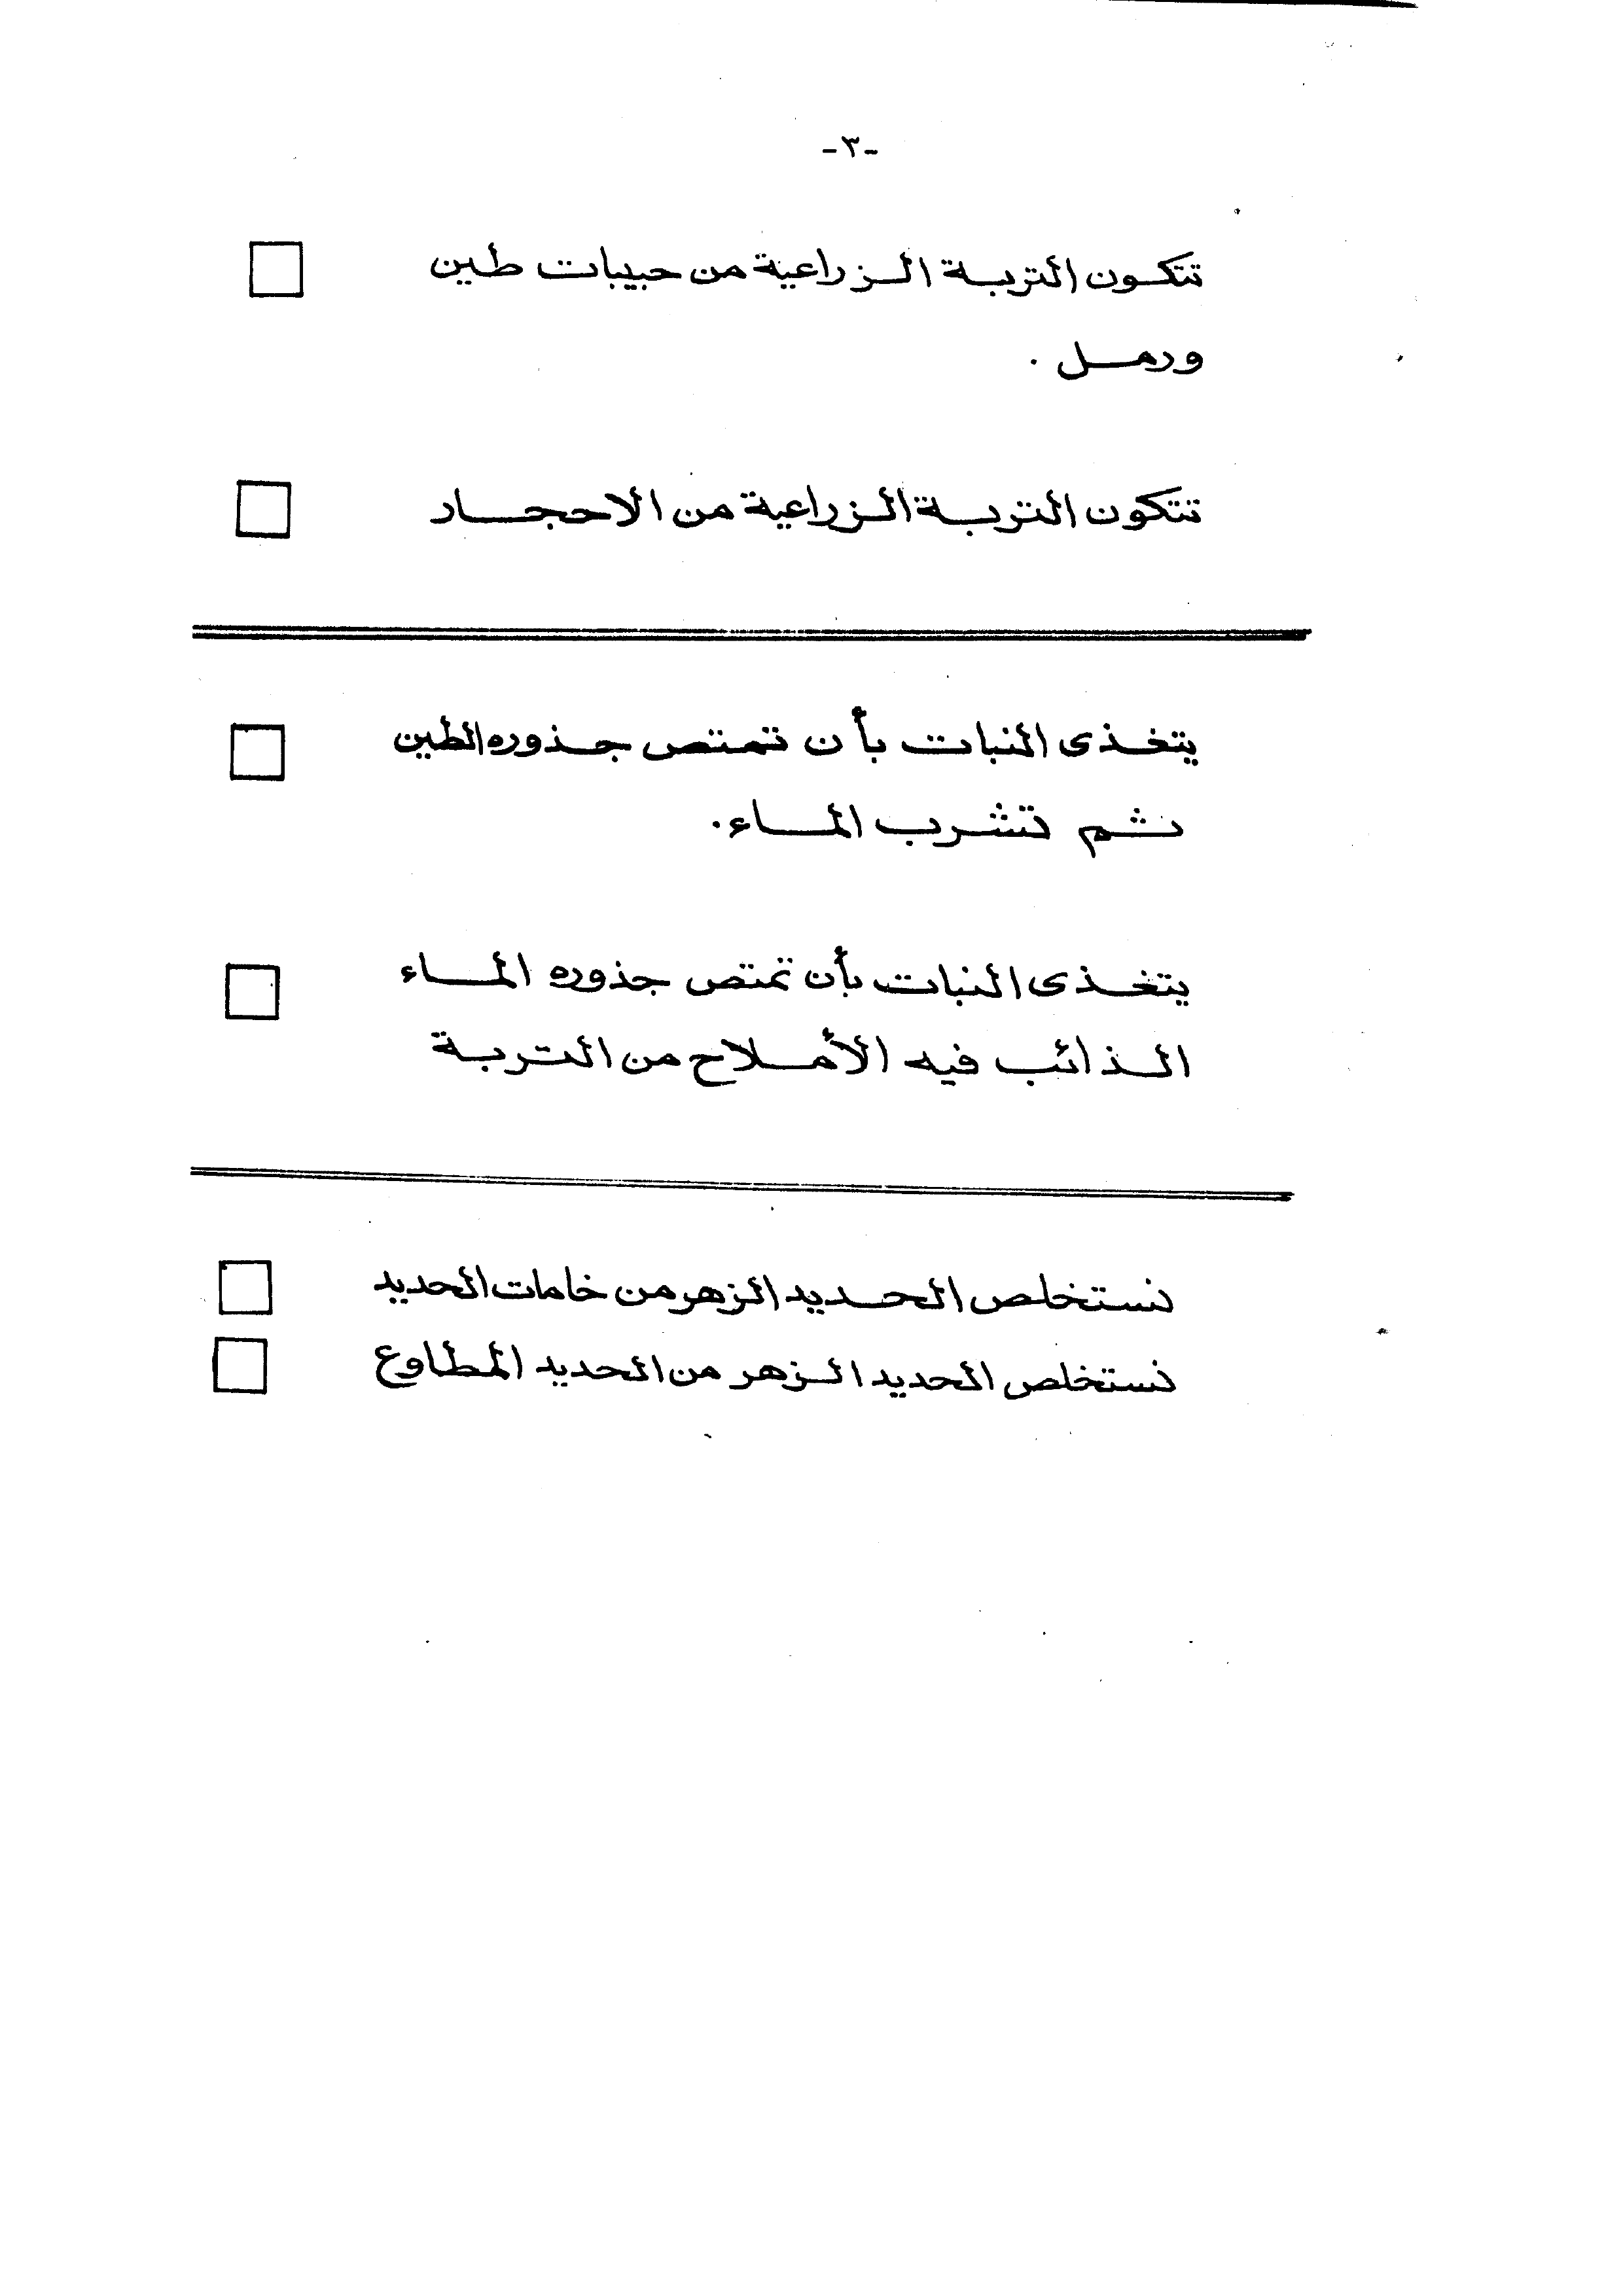 -٣-
تتكون التربة الزراعية من حبيبات طين
ورمل .
تتكون التربة الزراعية من الاحجار
يتغذى النبات بأن تمتص جذوره الطين
ثم تشرب الماء.
يتغذى النبات بأن تمتص جذوره الماء
الذائب فيه الأملاح من التربة
نستخلص الحديد الزهر من خامات الحديد
نستخلص الحديد الزهر من الحديد المطاوع